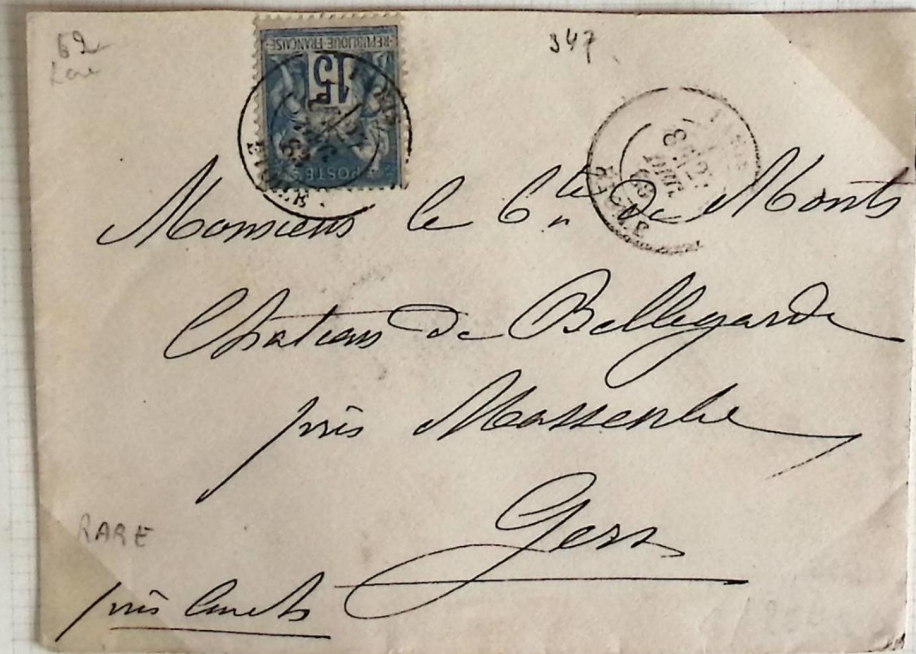 62
Rare
347
REPUBLIQUE FRANÇAISE
15
POSTES
Monsieur le Cte de Monts
Château de Bellegarde
près Masseube
Gers
RARE
près